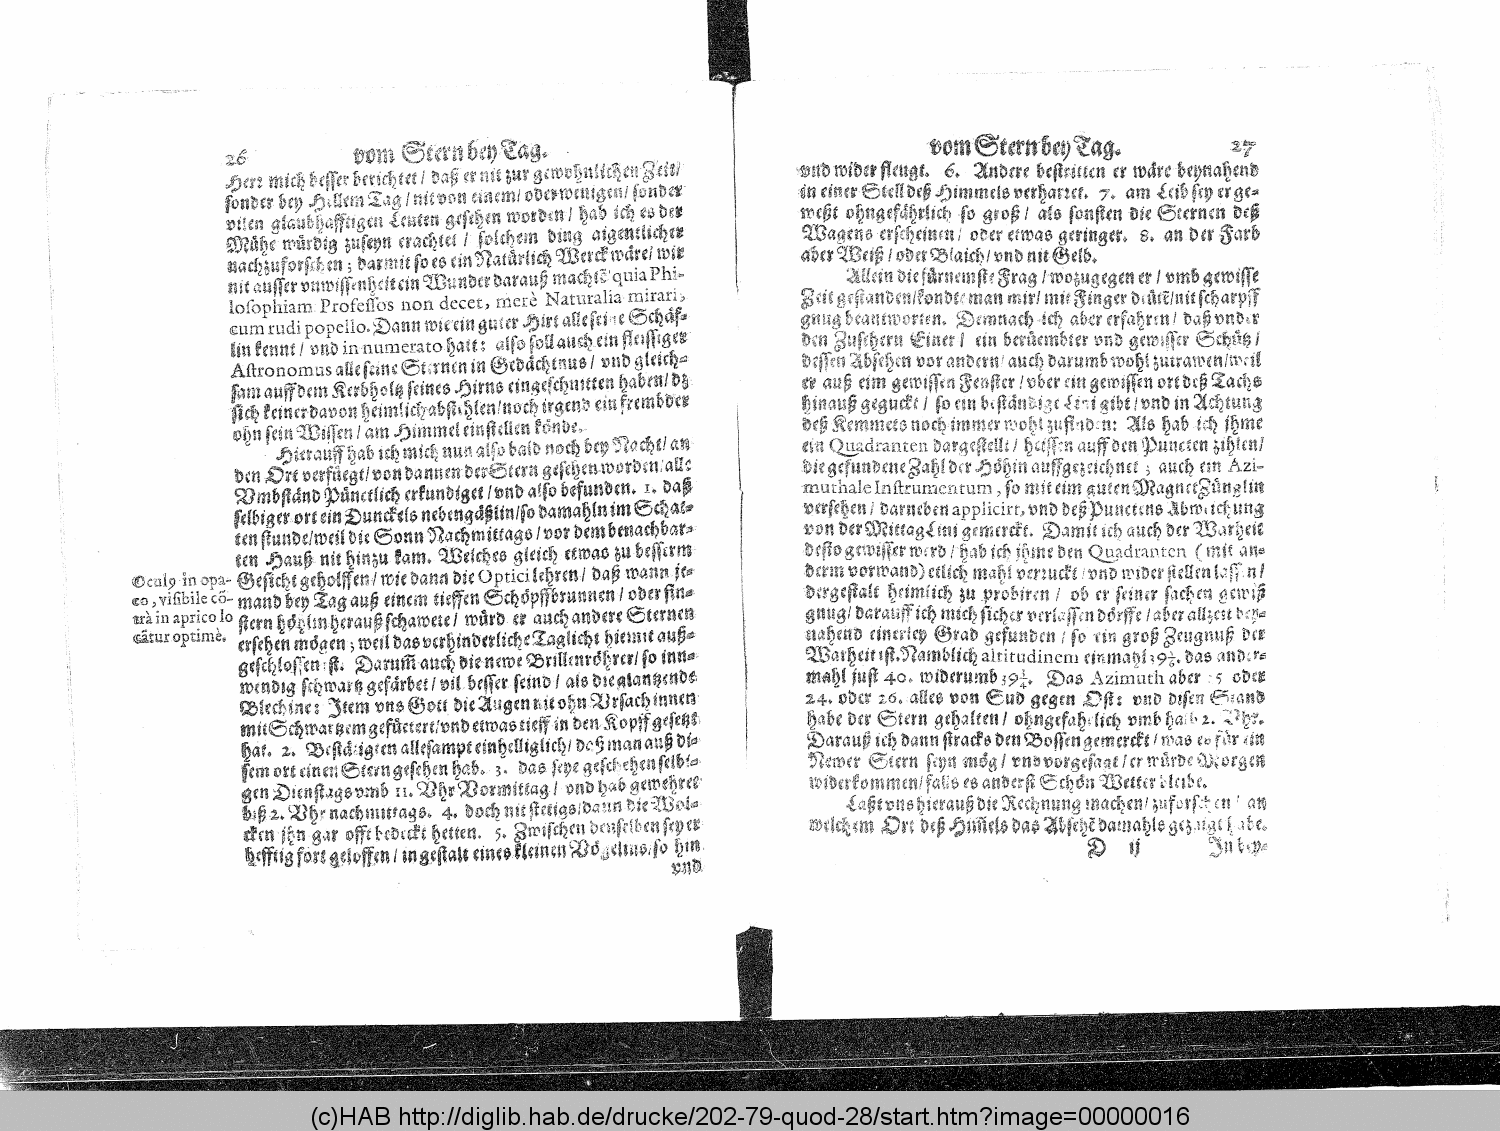 26 vom Stern bey Tag.
Herr mich besser berichtet / daß er nit zur gewohnlichen Zeit /
sonder bey Hellem Tag / nit von einem / oder wenigen / sonder
vilen glaubhafftigen Leuten gesehen worden / hab ich es der
Mühe würdig zuseyn erachtet / solchem ding aigentlicher
nachzuforschen ; darmit so es ein Natürlich Werck wäre / wir
nit ausser vnwissenheit ein Wunder darauß machtē quia Phi-
losophiam Professos non decet, merè Naturalia mirari,
cum rudi popello. Dann wie ein guter Hirt alle seine Schäf-
lin kennt / vnd in numerato hatt : also soll auch ein fleissiger
Astronomus alle seine Sternen in Gedächtnus / vnd gleich-
sam auff dem Kerbholtz seines Hirns eingeschnitten haben / dz
sich keiner davon heimlich abstehlen / noch irgend ein frembder
ohn sein Wissen / am Himmel einstellen könde.
Hierauff hab ich mich nun also bald noch bey Nacht / an
den Ort verfüegt / von dannen der Stern gesehen worden / alle
Vmbständ Pünctlich erkundiget / vnd also befunden. 1. daß
selbiger ort ein Dunckels nebengäßlin / so damahln im Schat-
ten stunde / weil die Sonn Nachmittags / vor dem benachbar-
ten Hauß nit hinzu kam. Welches gleich etwas zu besserm
Gesicht geholffen / wie dann die Optici lehren / daß wann je-
mand bey Tag auß einem tieffen Schöpffbrunnen / oder fin-
stern höhlin herauß schawete / würd er auch andere Sternen
ersehen mögen ; weil das verhinderliche Taglicht hiemit auß-
geschlossen ist. Darum̃ auch die newe Brillenröhrer / so inn-
wendig schwartz gefärbet / vil besser seind / als die glantzende
Blechine : Item vns Gott die Augen nit ohn Vrsach innen
mit Schwartzem gefüetert / vnd etwas tieff in den Kopff gesetzt
hat. 2. Bestätigten allesampt einhelliglich / daß man auß di-
sem ort einen Stern gesehen hab. 3. das seye geschehen selbi-
gen Dienstags vmb 11. Vhr Vormittag / vnd hab gewehret
biß 2. Vhr nachmittags. 4. doch nit stetigs / dann die Wol-
cken jhn gar offt bedeckt hetten. 5. Zwischen denselben sey er
hefftig fort geloffen / in gestalt eines kleinen Vögelins / so hin
vnd
Oculꝰ in opa-
co, visibile cō-
trà in aprico lo
cātur optimè.
vom Stern bey Tag. 27
vnd wider fleugt. 6. Andere bestritten er wäre beynahend
in einer Stell deß Himmels verharret. 7. am Leib sey er ge-
weßt ohngefährlich so groß / als sonsten die Sternen deß
Wagens erscheinen / oder etwas geringer. 8. an der Farb
aber Weiß / oder Blaich / vnd nit Gelb.
Allein die fürnemste Frag / wozugegen er / vmb gewisse
Zeit gestanden / kondte man mir / mit Finger deütē / nit scharpff
gnug beantworten. Demnach ich aber erfahren / daß vnder
den Zusehern Einer / ein berüembter vnd gewisser Schütz /
dessen Absehen vor andern / auch darumb wohl zutrawen / weil
er auß eim gewissen Fenster / vber ein gewissen ort deß Tachs
hinauß geguckt / so ein beständige Lini gibt / vnd in Achtung
deß Kemmets noch immer wohl zufinden : Als hab ich ihme
ein Quadranten dargestellt / heissen auff den Puncten zihlen /
die gefundene Zahl der Höhin auffgezeichnet ; auch ein Azi-
muthale Instrumentum, so mit eim guten Magnet Zünglin
versehen / darneben applicirt, vnd deß Punctens Abweichung
von der Mittag Lini gemerckt. Damit ich auch der Warheit
desto gewisser werd / hab ich ihme den Quadranten ( mit an-
derm vorwand) etlich mahl verruckt / vnd wider stellen lassen /
dergestalt heimlich zu probiren / ob er seiner sachen gewiß
gnug / darauff ich mich sicher verlassen dörffe / aber allzeit bey-
nahend einerley Grad gefunden / so ein groß Zeugnuß der
Warheit ist. Namblich altitudinem einmahl 39½. das ander-
mahl just 40. widerumb 39¼. Das Azimuth aber 25 oder
24. oder 26. alles von Sud gegen Ost : vnd disen Stand
habe der Stern gehalten / ohngefahrlich vmb halb 2. Vhr.
Darauß ich dann stracks den Bossen gemerckt / was es für ein
Newer Stern seyn mög / vnd vorgesagt / er würde Morgen
widerkommen / falls es anderst Schön Wetter bleibe.
Laßt vns hierauß die Rechnung machen / zuforschen / an
welchem Ort deß Him̃els das Absehē damahls gezaigt habe.
D ij In bey-
(c)HAB http://diglib.hab.de/drucke/202-79-quod-28/start.htm?image=00000016